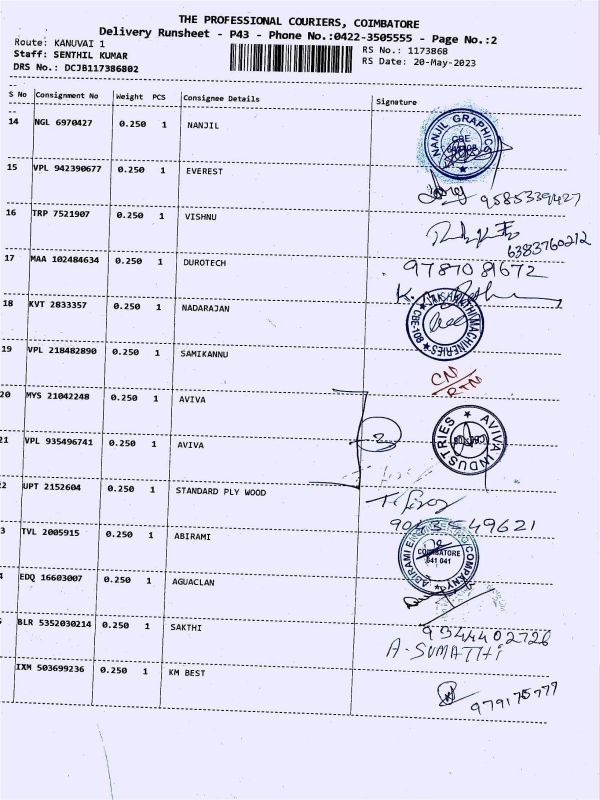 THE PROFESSIONAL COURIERS, COIMBATORE
Delivery Runsheet - P43 - Phone No.:0422-3505555 - Page No.:2
Route: KANUVAI 1
Staff: SENTHIL KUMAR
DRS No.: DCJB117386802
RS No.: 1173868
RS Date: 20-May-2023
S No Consignment No Weight PCS Consignee Details Signature
14 NGL 6970427 0.250 1 NANJIL
NANJIL GRAPHICS
CBE
15 VPL 942390677 0.250 1 EVEREST
9585339427
16 TRP 7521907 0.250 1 VISHNU
6383760212
17 MAA 102484634 0.250 1 DUROTECH
9787081672
18 KVT 2833357 0.250 1 NADARAJAN
MACHINERIES
19 VPL 218482890 0.250 1 SAMIKANNU
CN/RTN
20 MYS 21042248 0.250 1 AVIVA
AVIVA INDUSTRIES
21 VPL 935496741 0.250 1 AVIVA
2
2 UPT 2152604 0.250 1 STANDARD PLY WOOD
9043549621
3 TVL 2005915 0.250 1 ABIRAMI
ABIRAMI ENGINEERING COMPANY
COIMBATORE
641 041
4 EDQ 16603007 0.250 1 AGUACLAN
BLR 5352030214 0.250 1 SAKTHI
9344402726
A-SUMATHI
IXM 503699236 0.250 1 KM BEST
979175777